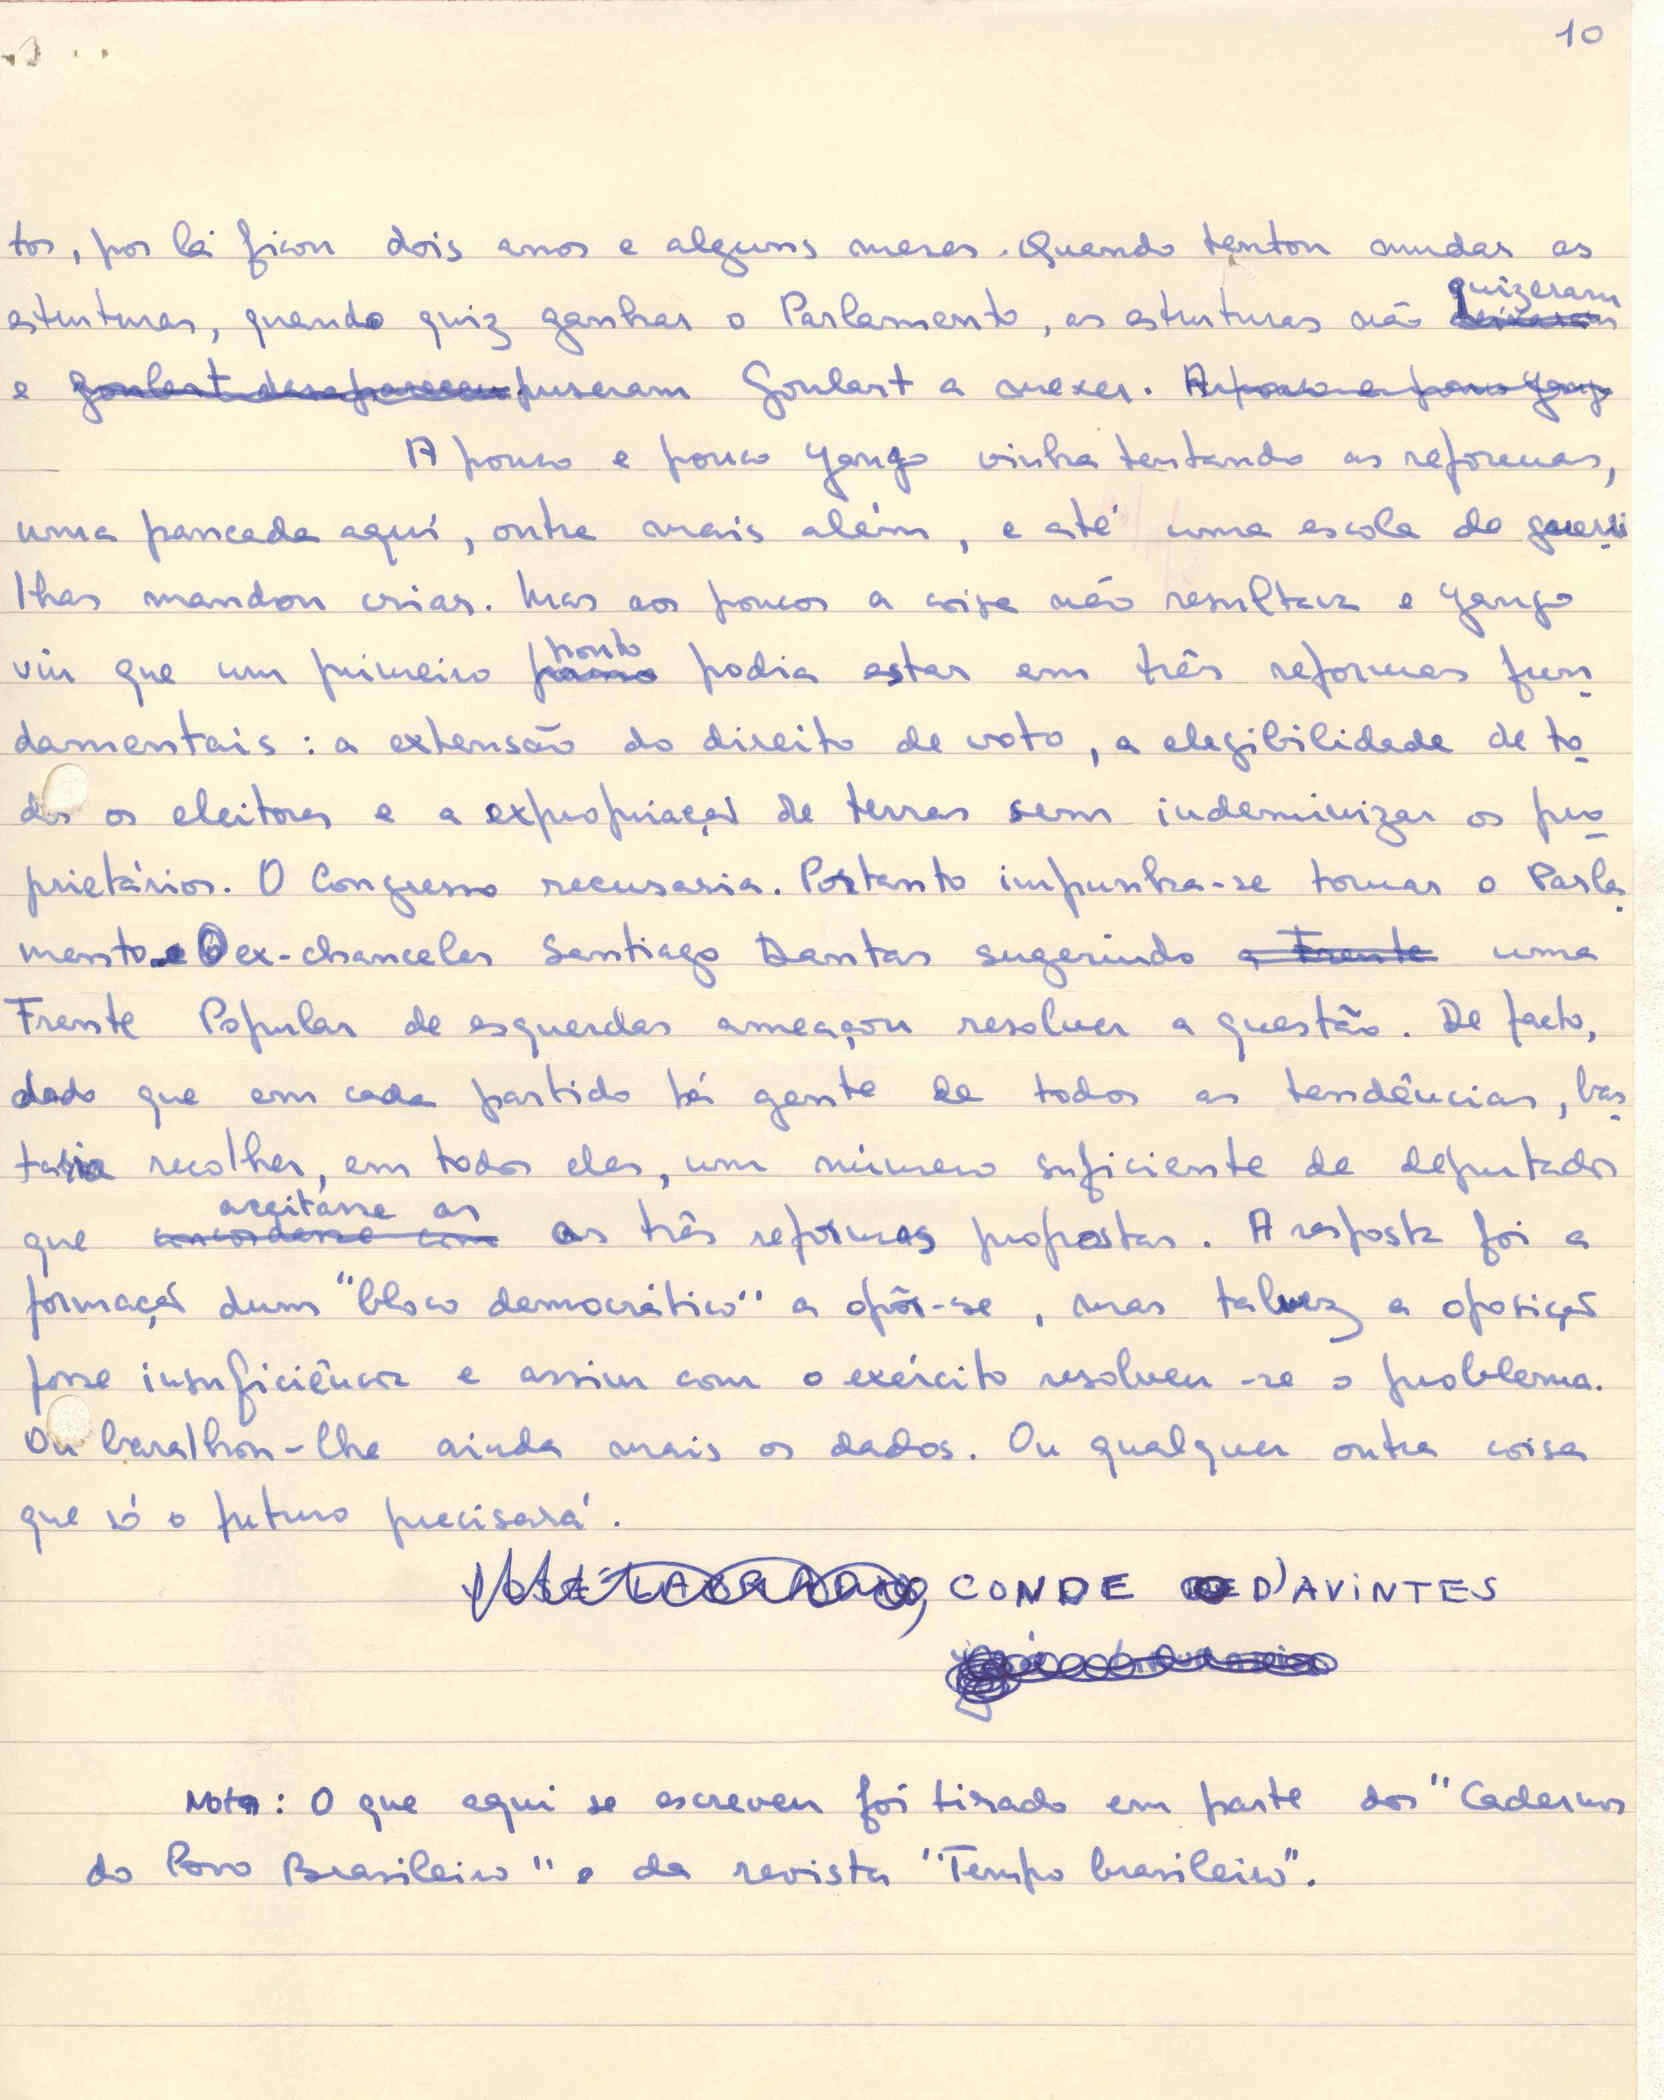 10
tos, por lá ficou dois anos e alguns meses. Quando tentou mudar as
estruturas, quando quiz ganhar o Parlamento, as estruturas não quizeram
e Goulart desapareceu puseram Goulart a mexer. A pouco e pouco Yango
A pouco e pouco Yango vinha tentando as reformas,
uma pancada aqui, outra mais além, e até uma escola de guerri
lhas mandou criar. Mas aos poucos a coisa não resultava e Yango
viu que um primeiro ponto podia estar em três reformas fun
damentais: a extensão do direito de voto, a elegibilidade de to
dos os eleitores e a expropriação de terras sem indeminizar os pro
prietários. O Congresso recusaria. Portanto impunha-se tomar o Parla
mento. O ex-chanceler Santiago Dantas sugerindo a Frente uma
Frente Popular de esquerdas ameaçou resolver a questão. De facto,
dado que em cada partido há gente de todos as tendências, bas
taria recolher, em todos eles, um número suficiente de deputados
que concordasse com aceitasse as as três reformas propostas. A resposta foi a
formação dum "bloco democrático" a opôr-se, mas talvez a oposição
fosse insuficiência e assim com o exército resolveu-se o problema.
Ou baralhou-lhe ainda mais os dados. Ou qualquer outra coisa
que só o futuro precisará.
CONDE D'AVINTES
Nota: O que aqui se escreveu foi tirado em parte dos "Cadernos
do Povo Brasileiro" e da revista "Tempo brasileiro".